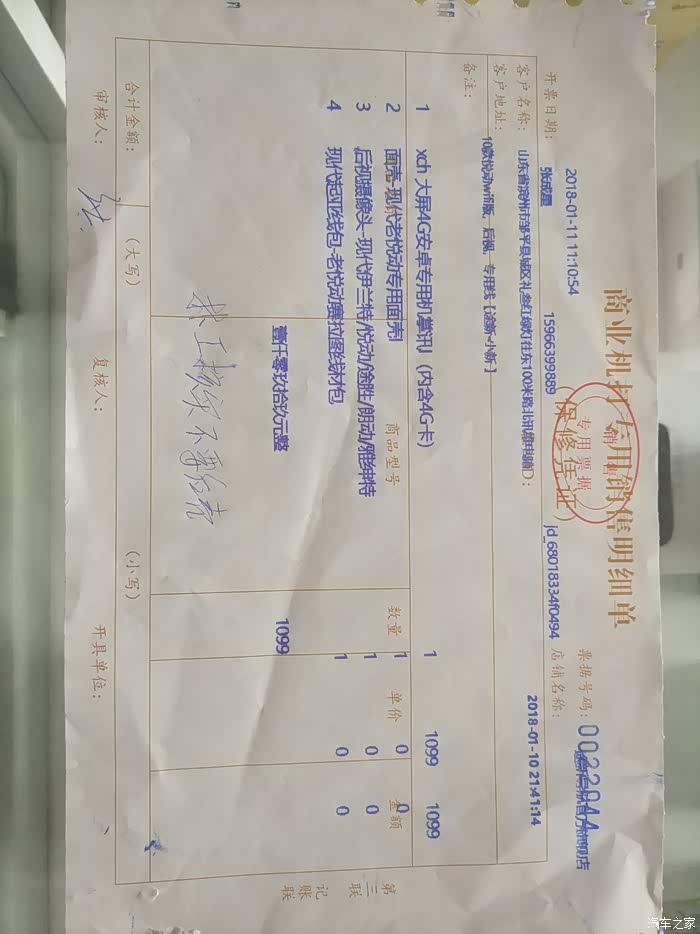 商业机打专用销售明细单
(保修凭证)
专用票据
票据号码: 0022944
开票日期: 2018-01-11 11:10:54
店铺名称: 官方旗舰店
客户名称: 张成星 15966399889 jd_68018334f0494 2018-01-10 21:41:14
客户地址: 山东省滨州市邹平县城区礼参红绿灯往东100米路北讯 电脑D:
备注: 10款悦动wifi版,后视,专用线【途新~小新】
商品型号 数量 单价 金额
1 xch 大屏4G安卓专用机掌讯(内含4G卡) 1 1099 1099
2 面壳-现代老悦动专用面壳 1 0 0
3 后视摄像头-现代伊兰特/悦动/途胜/朗动/雅绅特 1 0 0
4 现代起亚线包-老悦动赛拉图线材包 1 0 0
合计金额: (大写) 壹仟零玖拾玖元整 (小写) 1099
审核人: 复核人: 开具单位:
第三联 记账联
汽车之家